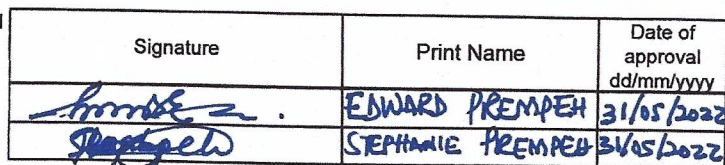 Signature Print Name Date of
approval
dd/mm/yyyy
EDWARD PREMPEH 31/05/2022
STEPHANIE PREMPEH 31/05/2022